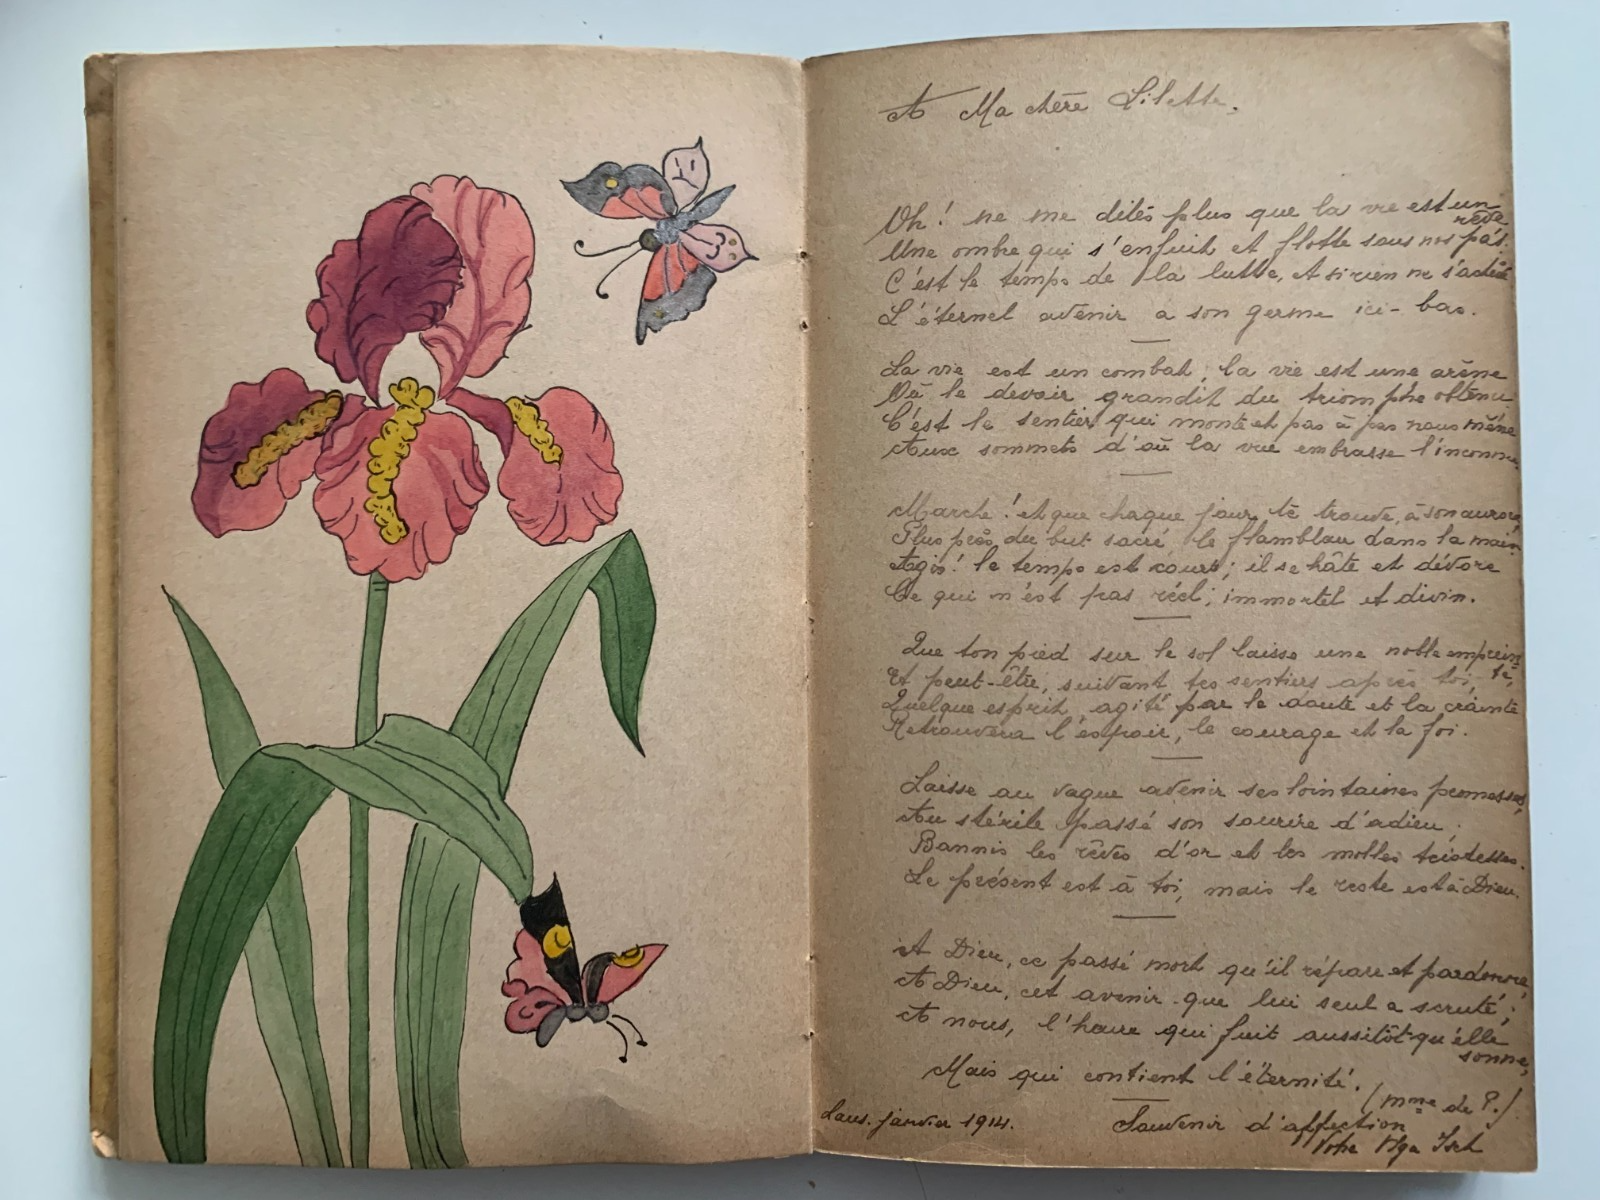 A Ma chère Lilette.
Oh! ne me dites plus que la vie est un
rêve
Une ombre qui s'enfuit et flotte sous nos pas.
C'est le temps de la lutte, et si rien ne s'achève
L'éternel avenir a son germe ici-bas.
La vie est un combat; la vie est une arène
Où le devoir grandit du triomphe obtenu
C'est le sentier qui monte et pas à pas nous mène
Aux sommets d'où la vue embrasse l'inconnu.
Marche! et que chaque jour te trouve, à son aurore,
Plus près du but sacré, le flambeau dans la main
Agis! le temps est court; il se hâte et dévore
Ce qui n'est pas réel, immortel et divin.
Que ton pied sur le sol laisse une noble emprein
te,
Et peut-être, suivant tes sentiers après toi,
Quelque esprit, agité par le doute et la crainte
Retrouvera l'espoir, le courage et la foi.
Laisse au vague avenir ses lointaines promesses,
Au stérile passé son sourire d'adieu;
Bannis les rêves d'or et les molles tristesses.
Le présent est à toi, mais le reste est à Dieu.
A Dieu, ce passé mort qu'il répare et pardonne,
A Dieu, cet avenir que lui seul a scruté;
A nous, l'heure qui fuit aussitôt qu'elle
sonne,
Mais qui contient l'éternité.
(Mme de P.)
Laus. janvier 1914.
Souvenir d'affection
Votre Olga